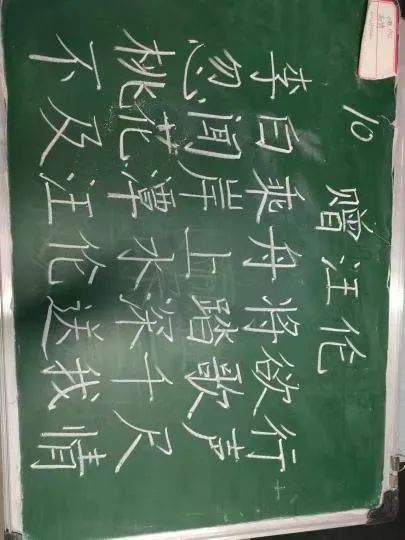 10
赠汪伦
李白乘舟将欲行
忽闻岸上踏歌声
桃花潭水深千尺
不及汪伦送我情